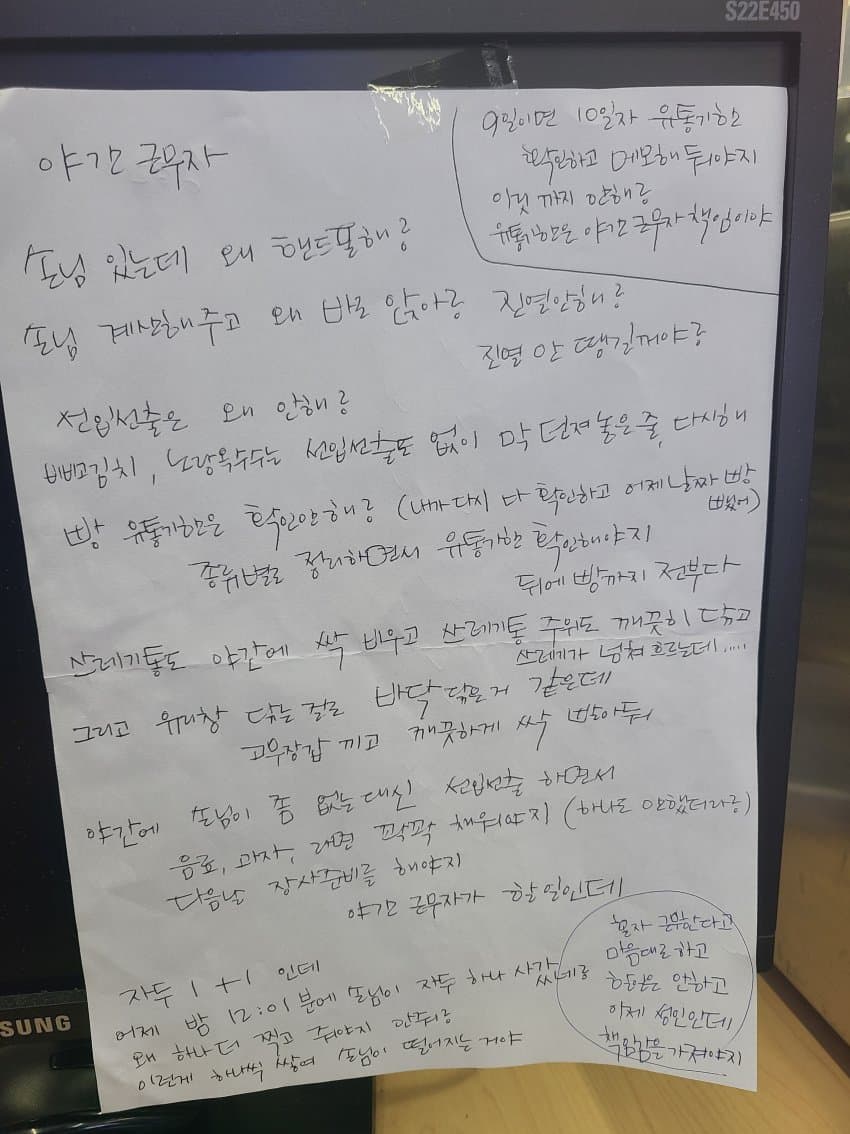 S22E450
야간 근무자
9일이면 10일자 유통기한
확인하고 메모해 둬야지
이것 까지 안해?
유통기한은 야간 근무자 책임이야
손님 있는데 왜 핸드폴해?
손님 계산해주고 왜 바로 앉아? 진열안해?
진열 안 땡길꺼야?
선입선출은 왜 안해?
비비고김치, 노랑옥수수는 선입선출도 없이 막 던져놓은 줄, 다시해
빵 유통기한은 확인안해? (내가 다시 다 확인하고 어제 날짜 빵
뺐어)
종류별로 정리하면서 유통기한 확인해야지
뒤에 빵까지 전부다
쓰레기통도 야간에 싹 비우고 쓰레기통 주위도 깨끗히 닦고
쓰레기가 넘쳐 흐르는데.....
그리고 유리창 닦는 걸로 바닥 닦은거 같은데
고무장갑 끼고 깨끗하게 싹 빨아둬
야간에 손님이 좀 없는대신 선입선출 하면서
음료, 과자, 라면 꽉꽉 채워야지 (하나도 안했더라?)
다음날 장사준비를 해야지
야간 근무자가 할 일인데
자두 1+1 인데
어제 밤 12:01분에 손님이 자두 하나 사갔는데?
왜 하나 더 찍고 줘야지 안줘?
이런게 하나씩 쌓여 손님이 떨어지는 거야
혼자 근무한다고
마음대로 하고
할일은 안하고
이제 성인인데
책임감을 가져야지
SUNG